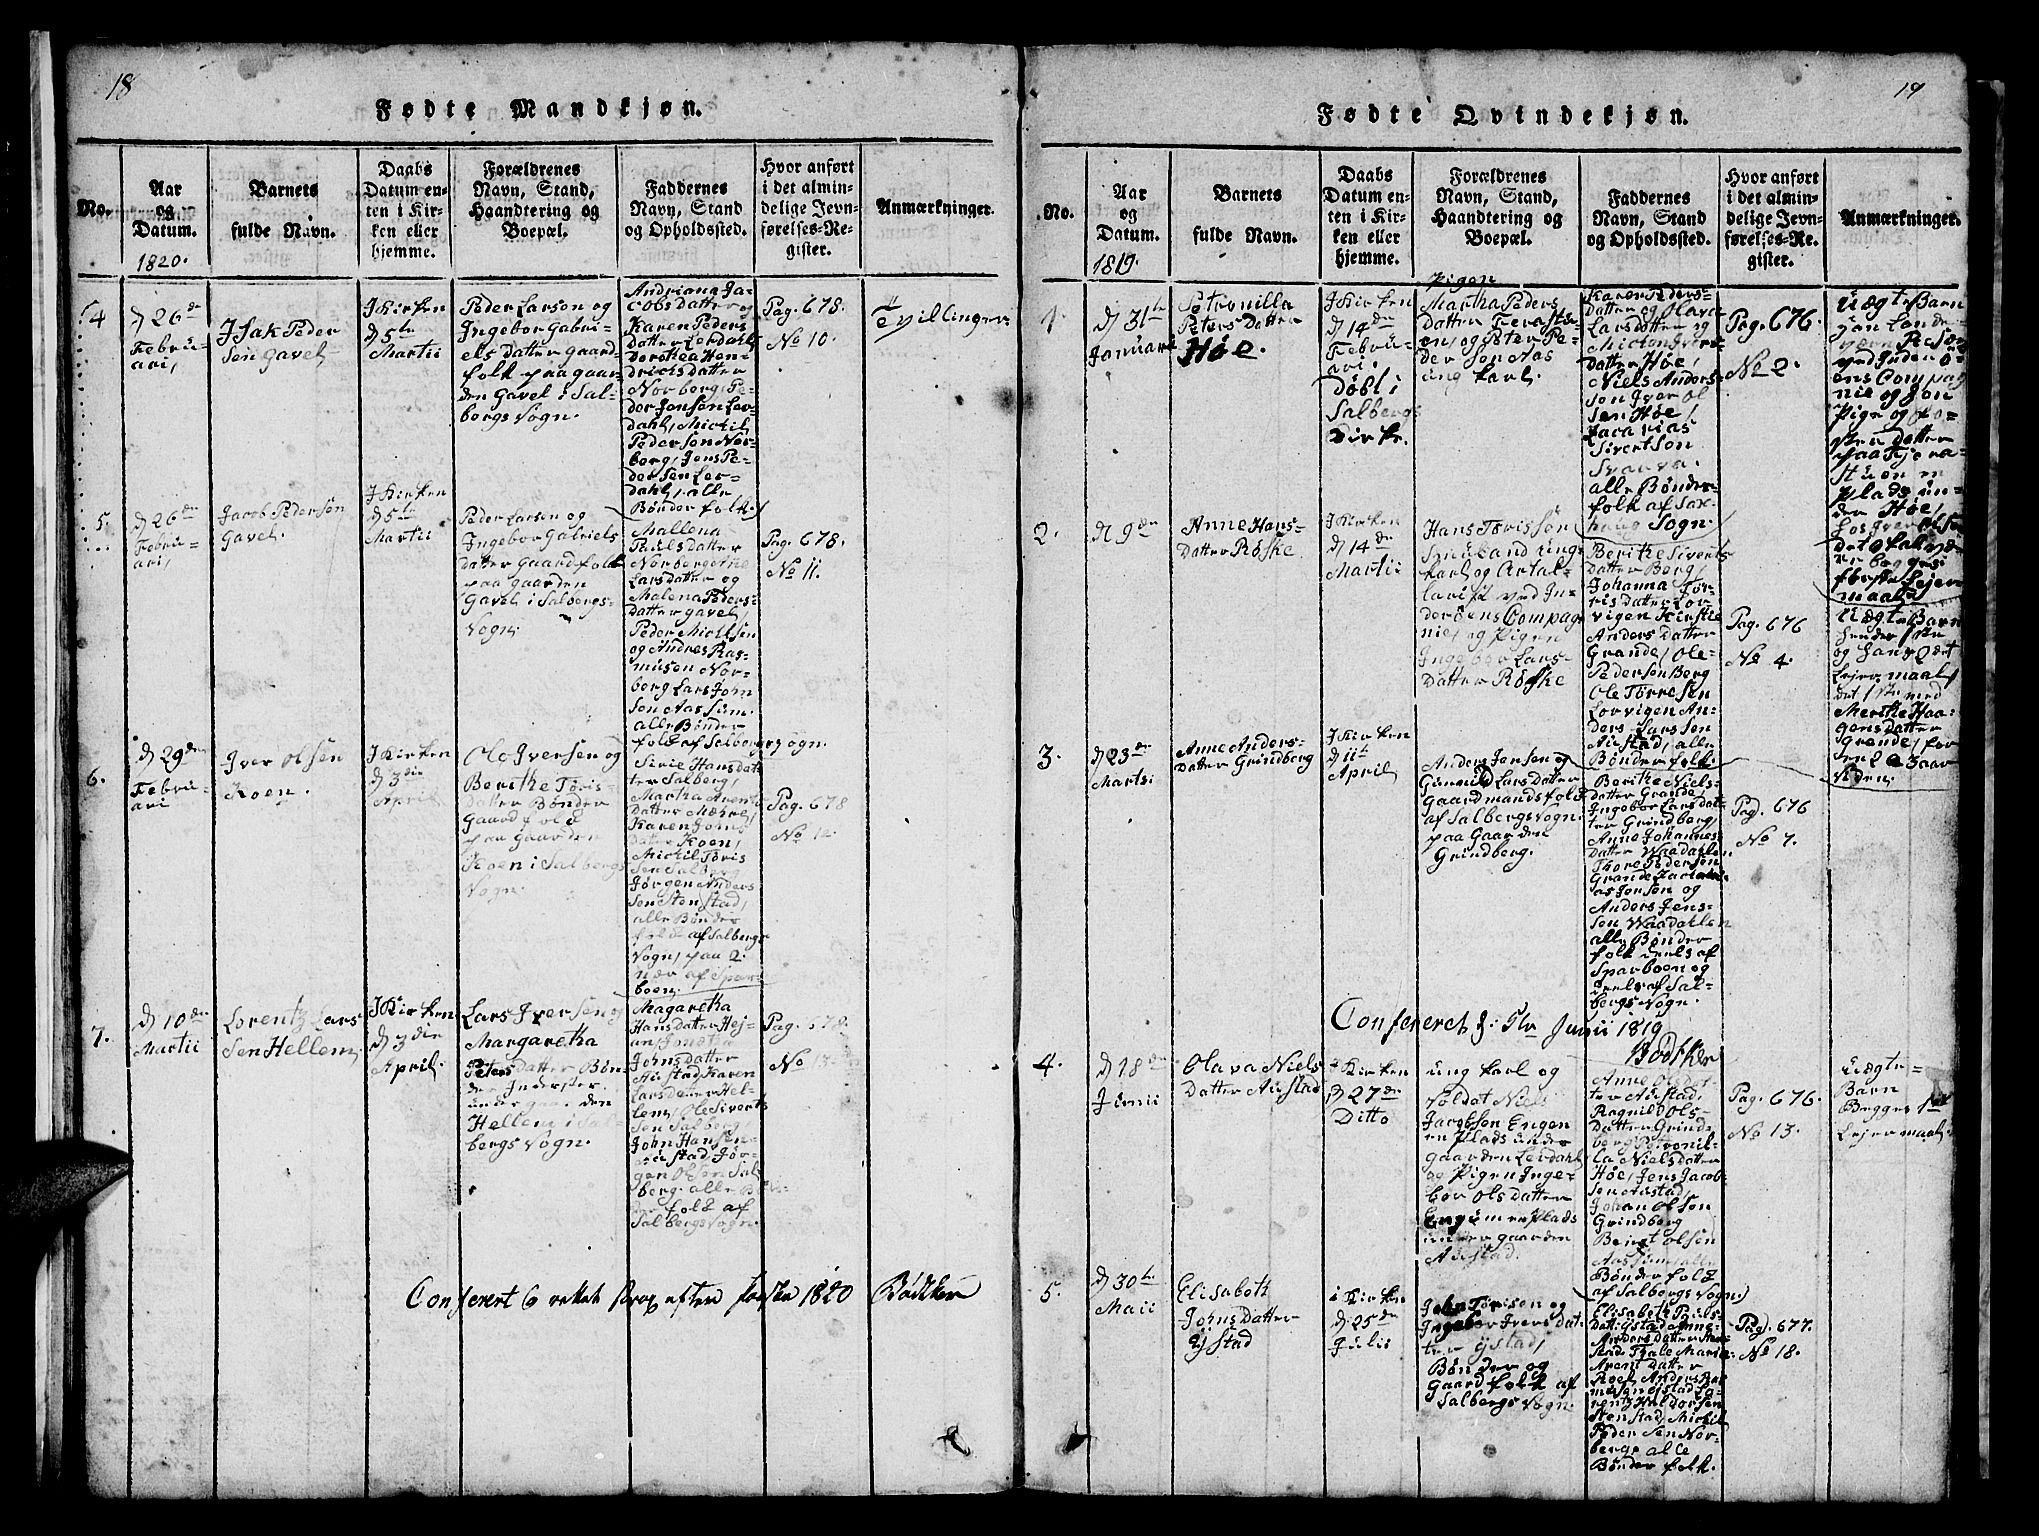 18
Fødte Mandkjøn.
No.
Aar
og
Datum.
Barnets
fulde Navn.
Daabs
Datum en-
ten i Kir-
ken eller
hjemme.
Forældrenes
Navn, Stand,
Haandtering og
Boepæl.
Faddernes
Navn, Stand
og Opholdssted.
Hvor anført
i det almin-
delige Jevn-
førelses-Re-
gister.
Anmærkninger.
1820.
4
d 26de
Febru-
ari,
Isak Peder
Sen Gavel
I Kirken
d 5te
Martii
Peder Larsen og
Ingebor Gabri-
els datter Gaard-
folk paa gaar-
den Gavel i Sal-
bergs Sogn.
Andriana Ja-
cobs datter og
Karen Peders
datter Lerdahl
Dorothea Hen-
drichsdatter
Norberg, Pe-
der Jensen Ler-
dahl, Mickil
Pedersen Nor-
berg, Jens Pe-
dersen Ler-
dahl, alle
Bønder folk.
Pag. 678.
No 10.
Tvillinger
5.
d 26de
Febru-
ari,
Jacob Pedersøn
Gavel.
I Kirken
d 5te
Martii
Peder Larsen og
Ingebor Gabriels
datter Gaard folk
paa gaarden
Gavel i Salbergs-
Sogn.
Mallena
Paulsdatter
Norberg
Larsdatter og
Malena Peders-
datter gavel,
Peder Mickelsen
og Andres Ras-
musen Nor-
berg Lars John
Sen Aassum
alle Bønder
folk af Salbergs sogn.
Pag. 678.
No 11.
6.
d 29de
Febru-
ari
Iver olsen
Koen.
I Kirken
d 3die
April
Ole Iversen og
Berithe Tøris
datter Bønder
Gaard folk
paa Gaarden
Koen i Salbergs
Sogn.
Sirie Hansdat-
ter Salberg,
Martha Arents
datter Mæhre,
Karen Johns
datter Koen,
Mickil Tøris
Sen Salberg
Jørgen Anders
Sen Stenstad,
alle Bønder
folk af Salbergs
Sogn, paa 2
nær af Spar-
boen.
Pag. 678
No 12.
7.
d 10de
Martii
Lorentz Lars
Sen Hellem,
I Kirken
d 3die
April.
Lars Iversen og
Margaretha
Peters datter Bøn-
der Inderster
under gaarden
Hellem i Sal-
bergs Sogn.
Magaretha
Hansdatter Hej-
Johnsdatter
Austad, Karen
Larsdatter Hel-
lem, Ole Siverts
Sen Salberg,
John Hansen
Austad, Jør-
gen Olsen Sal-
berg. alle Bøn-
der folk af
Salbergs Sogn.
Pag. 678.
No 13.
Confereret Bødtker
19
Fødte Qvindekjøn.
No.
Aar
og
Datum.
Barnets
fulde Navn.
Daabs
Datum en-
ten i Kir-
ken eller
hjemme.
Forældrenes
Navn, Stand,
Haandtering og
Boepæl.
Faddernes
Navn, Stand
og Opholdssted.
Hvor anført
i det almin-
delige Jevn-
førelses-Re-
gister.
Anmærkninger.
1819.
1.
d 31te
Januarii
Petronilla
Peters datter
Høe.
I Kirken
d 14de
Febru-
ari.
Døbt i
Salbergs
Kirke.
Pigen
Martha Peders
datter
og Peter Pe-
der Sen Aas
ung karl.
Karen Peders-
datter og Olava
Larsdatter og
datter Høe,
Niels Anders-
Sen Iver ol
Sen Høe,
Zacarias
Sivertsen
Svaava.
alle Bønder-
folk af Sax-
houg Sogn.
Pag. 676.
No 2.
Uægte Barn
2.
d 9de
Anne Hans-
datter Røske.
I Kirken
d 14de
Martii
Hans Tørissøn
ung-
karl og Artal-
lerist ved In-
derøens Compag-
nie, og Pigen
Ingebor Lars-
datter Røske
Berithe Siverts
datter Berg,
Johanna Tør-
risdatter Lor-
vigen Kirstie
Anders datter
Grande, Ole
Pedersen Berg
Ole Torresen
Lorvigen An-
ders Larssen
Austad, alle
Bønder folk.
Pag. 676
No 4.
Uægte Barn
hender 1ste
og hans 2det
Lejermaal,
det 1ste med
Merithe Haa-
gensdatter
Grande, for
en 2 Aar
Siden.
3.
d 23de
Martii
Anne Anders-
datter Grindberg
I Kirken
d 11te
April
Anders Jensen og
Gunnild Larsdatter
Gaardmandsfolk
af Salbergs Sogn.
paa Gaarden
Grindberg.
Berithe Niels-
datter Grande,
Ingebor Larsdat-
ter Grindberg,
Anne Johannes
datter Waadahlen
Thore Pedersen
Grande Zacari-
as Jensen og
Anders Jens-
Sen Waadahlen
alle Bønder
folk deels af
Sparboen og
deels af Sal-
bergs Sogn.
Pag. 676
No 7.
Confereret Junii 1819
Bødtker
4.
d 18de
Junii
Olava Niels
datter Austad
I Kirken
d 27de
Ditto
ung karl og
Soldat Niels
Jacobsen Engen
en Plads under
gaarden Lerdahl
og Pigen Inge-
bor Olsdatter
Engum en Plads
under gaarden
Austad.
Anne Olsdat-
ter Austad,
Ragnild Ols-
datter Grind-
berg, Petronil-
la Nielsdatter
Høe, Jens Jacob-
Sen Austad,
Johan Olsøn
Grindberg
Bengt olsen
Aassum alle
Bønder folk
af Salbergs Sogn.
Pag. 676.
No 13.
Uægte
Barn
Begges 1ste
Lejermaal.
5.
d 30te
Maii
Elisabeth
Johns datter
Ystad
i Kirken
d 25de
Julii
John Tørisen og
Ingebor Ivers dat-
ter Ystad,
Bønder og
Gaard folk af
Salbergs Sogn.
Elisabeth Pauls-
dat. Ystad Anne
Anders datter
Stad Thale Maria
Arent datter
Roel, Anders Ras-
musen Ystad, Lo-
rentz Haldorsen
Stenstad, Mickil
Peder Sen Nor-
berg. alle
Bønder folk.
Pag. 677.
No 18.